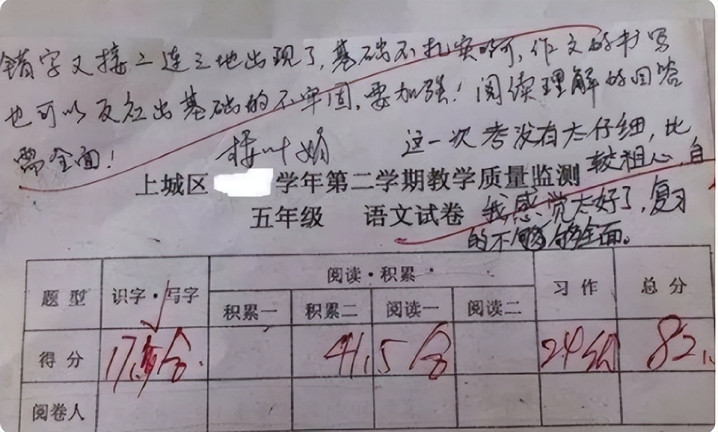 错字又接二连三地出现了,基础不扎实啊,作文的书写
也可以反应出基础的不牢固,要加强!阅读理解的回答
需全面!
这一次考没有太仔细,比
较粗心,自
我感觉太好了,复习
的不够全面。
上城区 学年第二学期教学质量监测
五年级 语文试卷
题 型 识字·写字 阅读·积累 习 作 总 分
积累一 积累二 阅读一 阅读二
得 分 17.5分. 41.5分 24分 82.
阅卷人